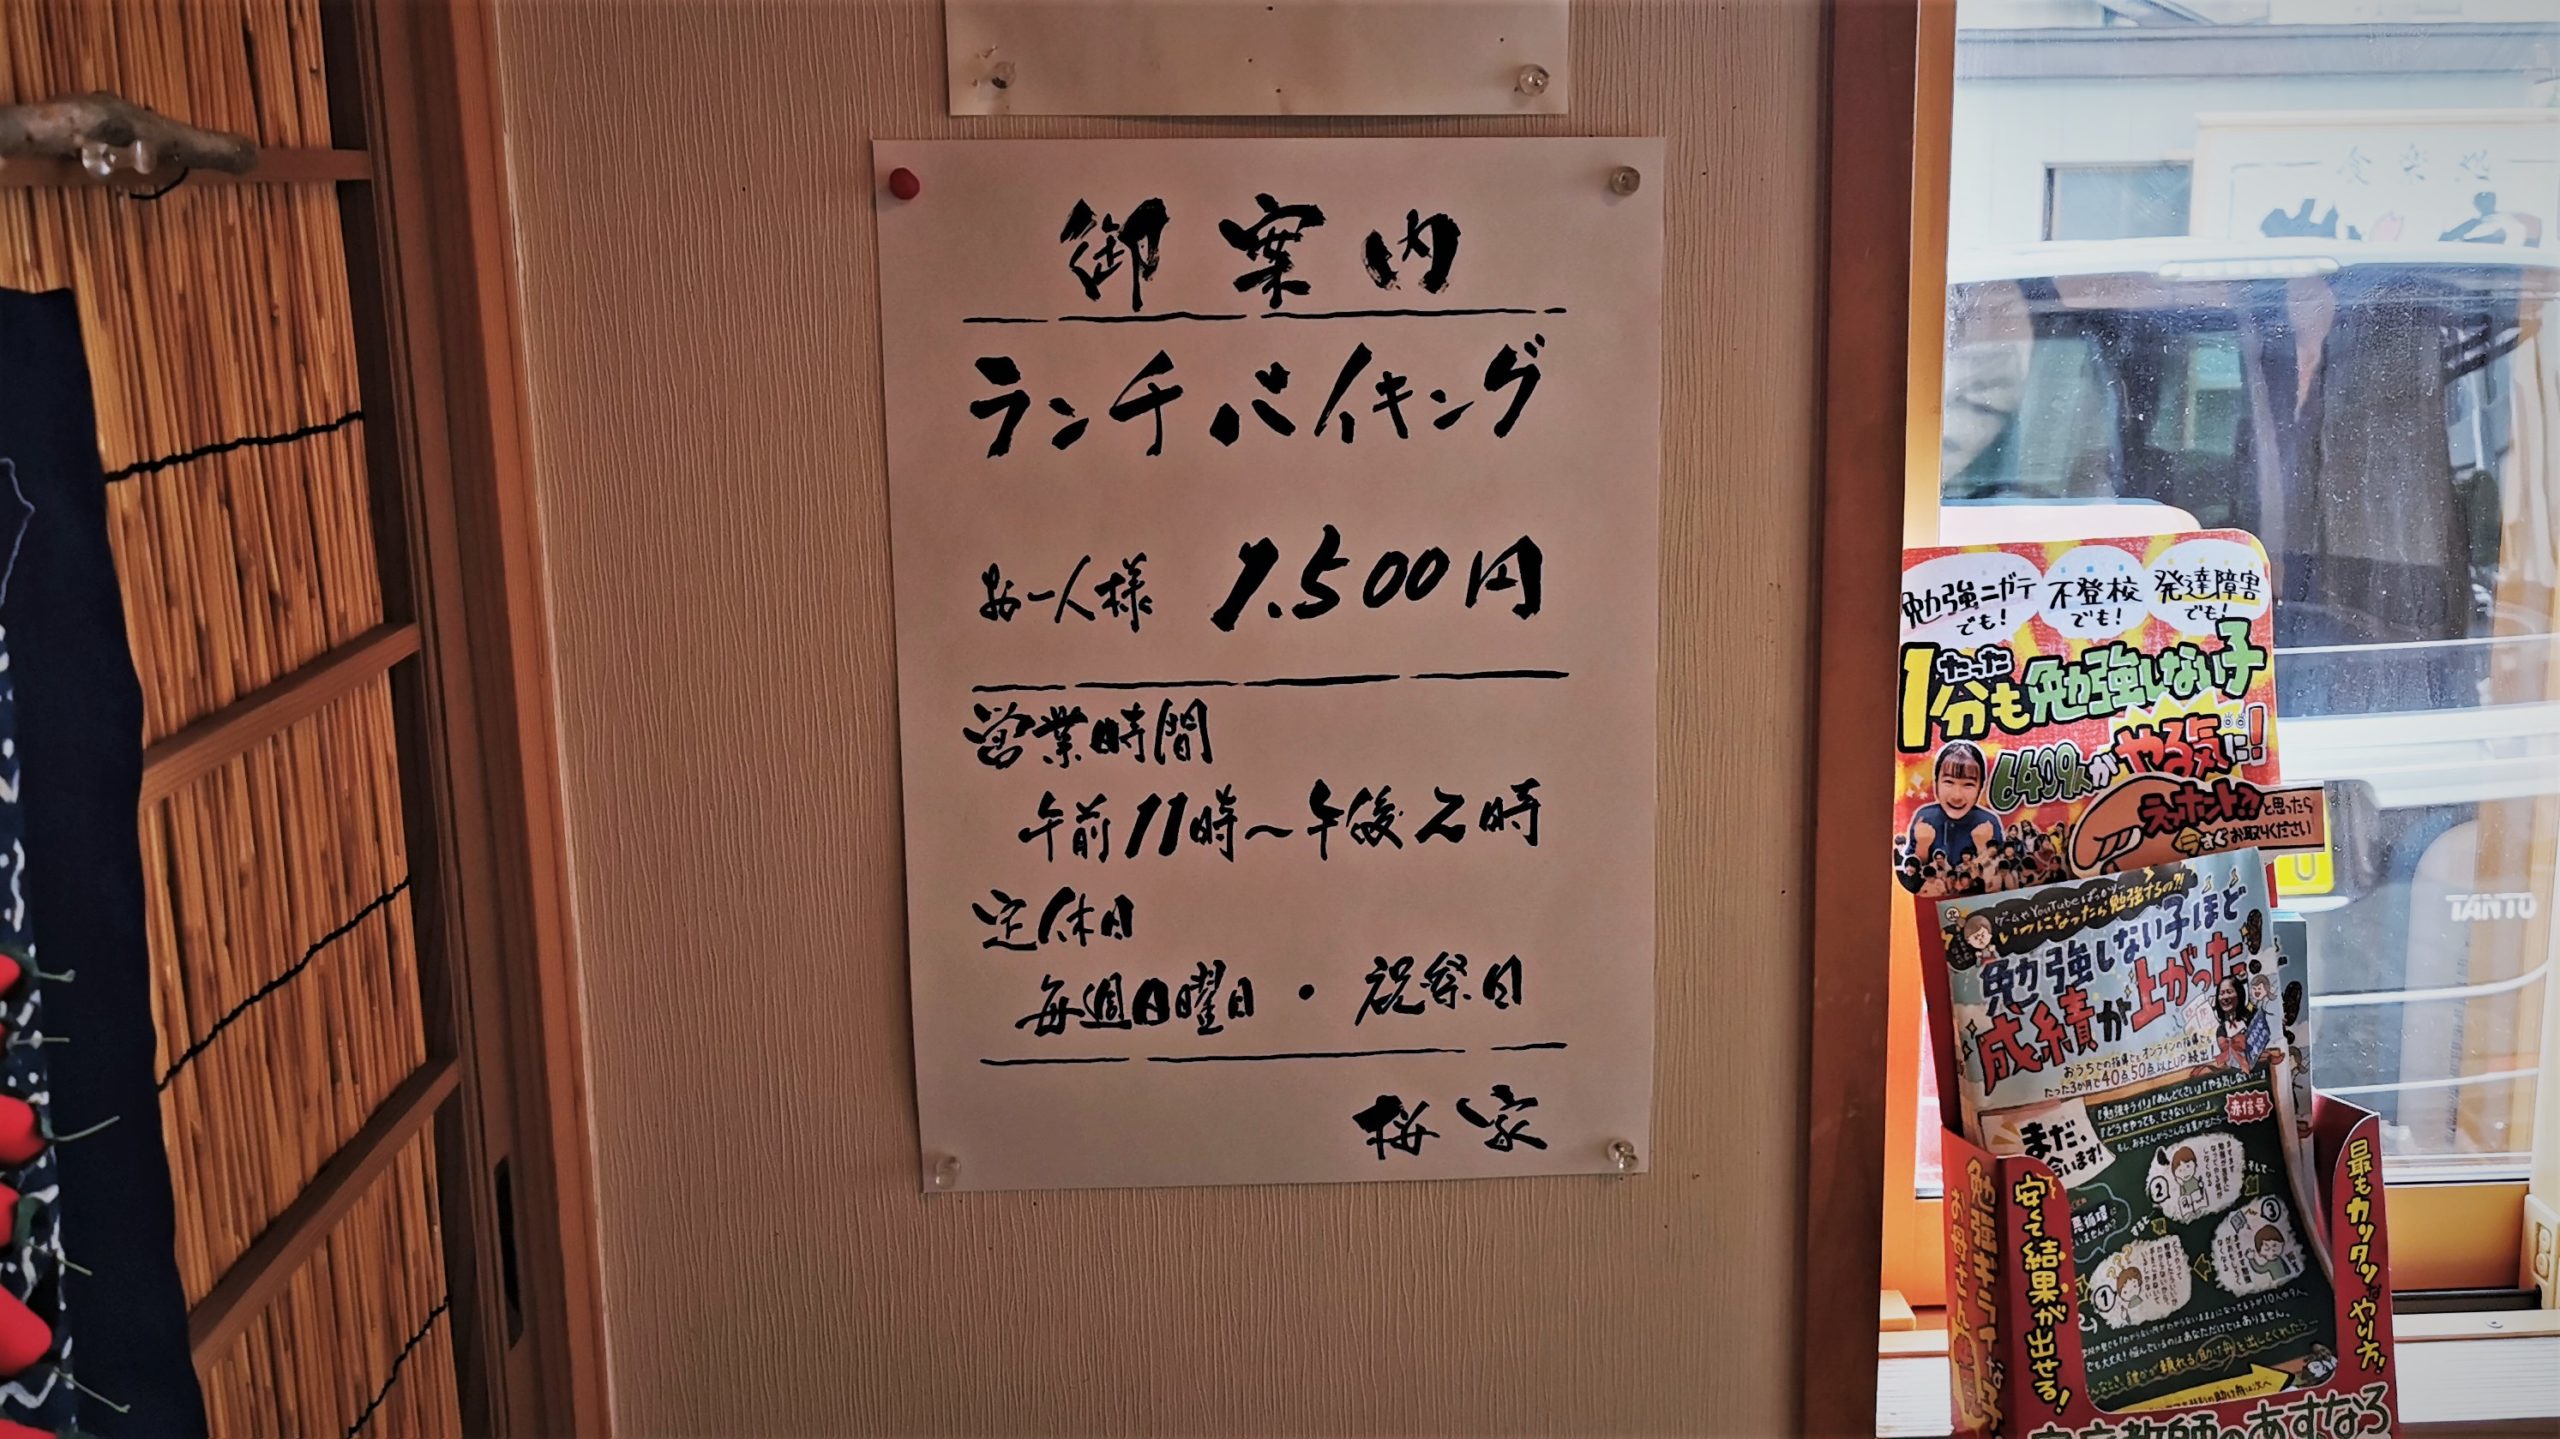 御案内
ランチバイキング
お一人様 1.500円
営業時間
午前11時～午後2時
定休日
毎週日曜日・祝祭日
桜家
食楽処
勉強ニガテでも!
不登校でも!
発達障害でも!
たった
1分も勉強しない子
6409人がやる気に!
え!?ホント!?と思ったら
今すぐお取りください
ゲームやYouTubeばっかり…
いつになったら勉強するの?!
勉強しない子ほど
成績が上がった!
おうちでの指導でもオンラインの指導でも
たった3か月で40点50点以上UP続出!
「勉強キライ!」「めんどくさい」「やる気しない…」
「どうせやっても、できないし…」
もし、お子さんがこんな言葉が出たら…
赤信号
まだ、
合います!
そして…
すると
1
2
3
安くて結果が出せる!
最もカンタンなやり方!
家庭教師のあすなろ
TANTO